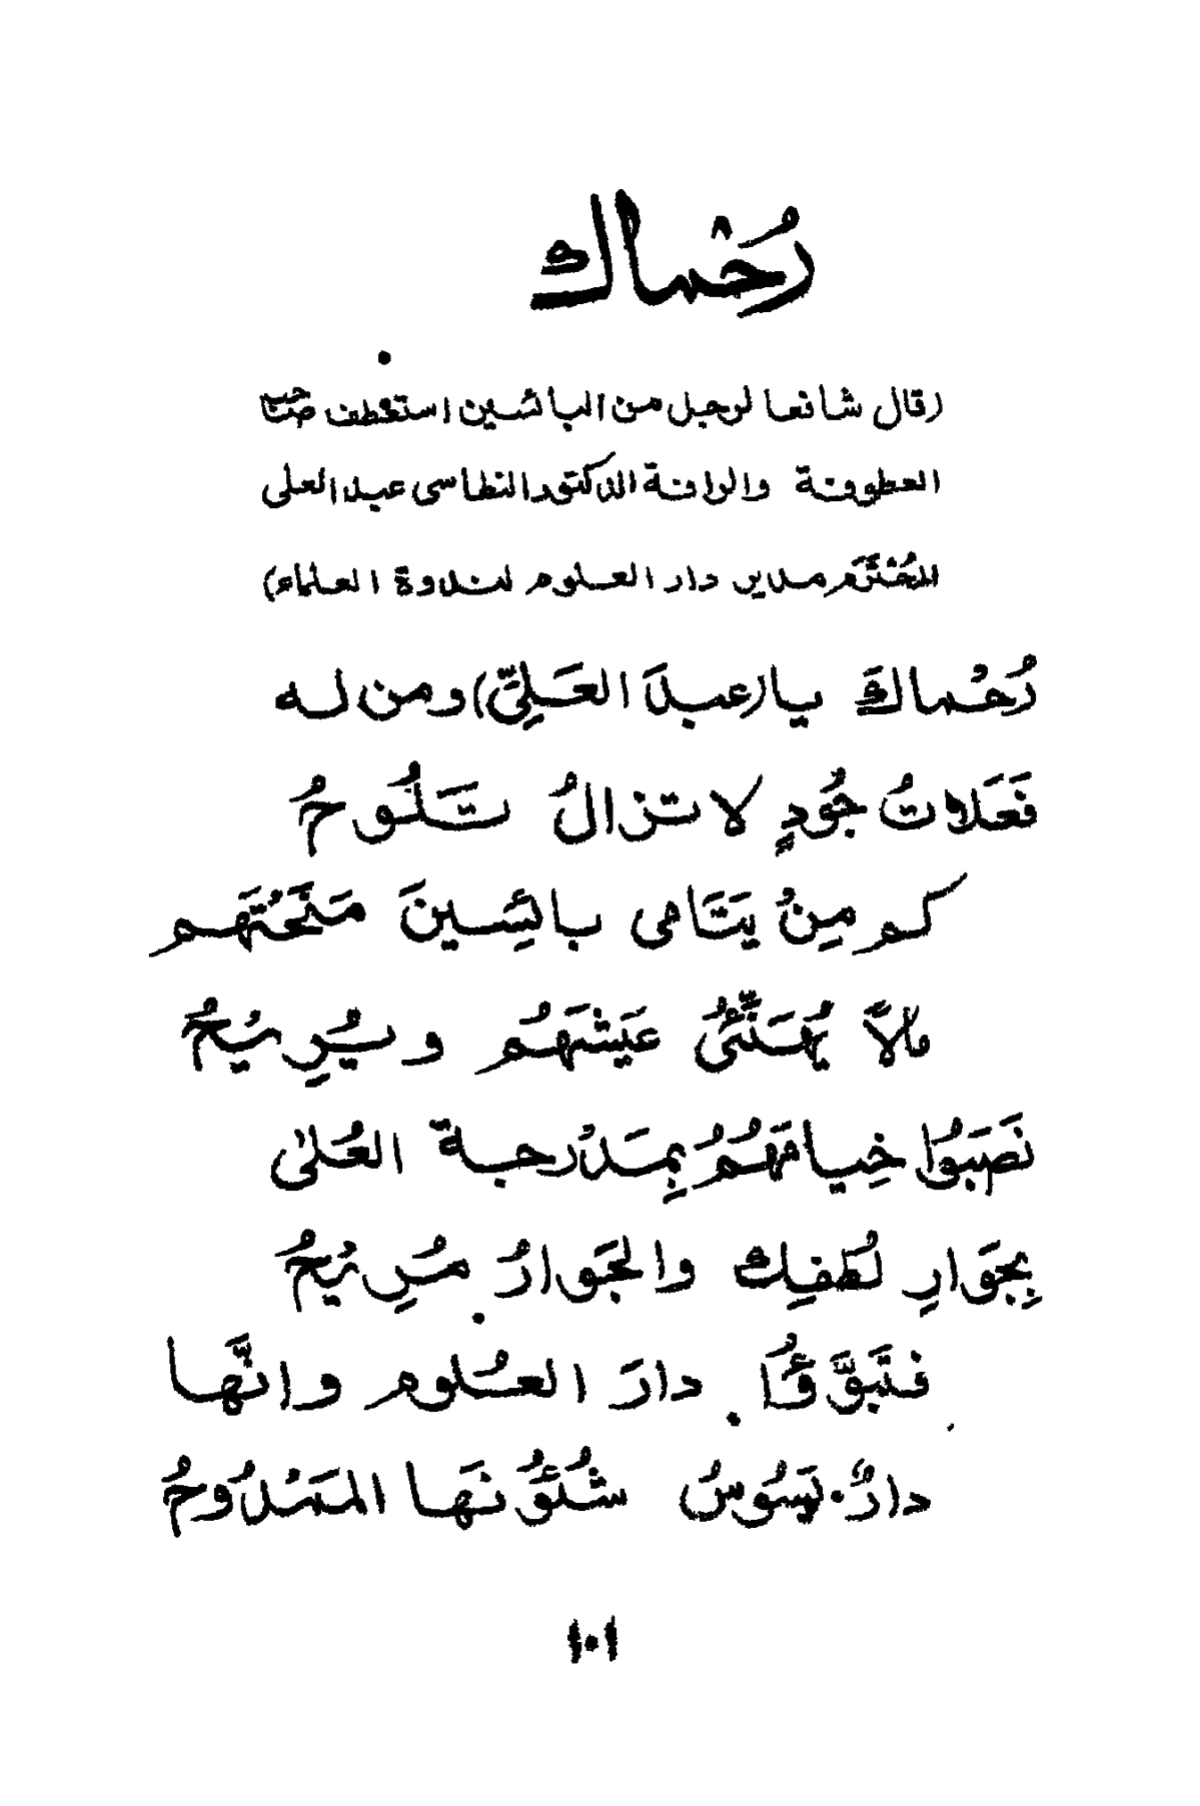 رُحْماك
(قال شافعا لرجل من البائسين استعطف صاحب
العطوفة والرافة الدكتور النطاسى عبد العلى
المُحْتَرَم مدير دار العلوم لندوة العلماء)
رُحْماكَ يا (عبدَ العَلِيّ) ومن له
فَعَلاتُ جُودٍ لا تزالُ تَلُوحُ
كم مِنْ يَتَامى بائِسِينَ مَنَحْتَهم
مالاً يُهَنِّئُ عَيْشَهُم ويُرِيْحُ
نَصَبُوا خِيامَهُمُ بِمَدْرجة العُلىٰ
بِجَوَارِ لُطفِك والجَوارُ مُرِيْحُ
فتَبَوَّؤُا دارَ العُلوم وانَّها
دارٌ تسُوسُ شُئُونَها المَمْدُوحُ
١٠١